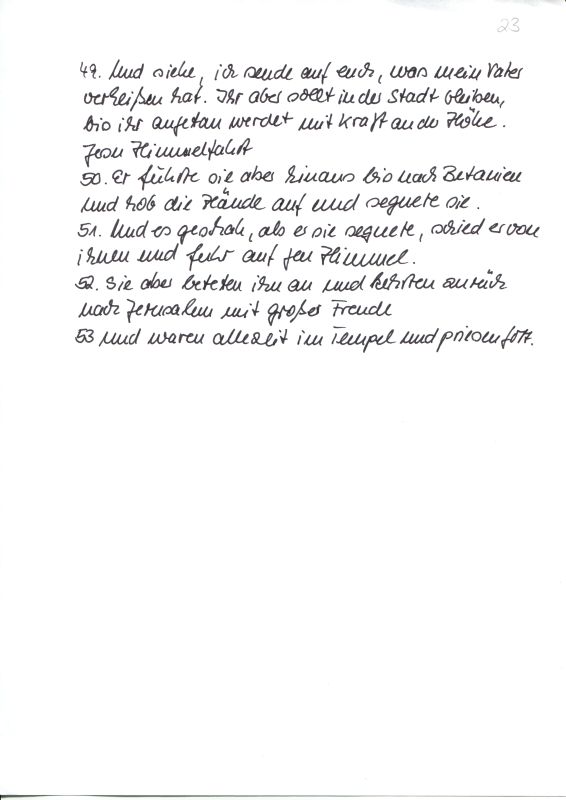 23
49. Und siehe, ich sende auf euch, was mein Vater
verheißen hat. Ihr aber sollt in der Stadt bleiben,
bis ihr angetan werdet mit Kraft aus der Höhe.
Jesu Himmelfahrt
50. Er führte sie aber hinaus bis nach Betanien
und hob die Hände auf und segnete sie.
51. Und es geschah, als er sie segnete, schied er von
ihnen und fuhr auf gen Himmel.
52. Sie aber beteten ihn an und kehrten zurück
nach Jerusalem mit großer Freude
53 und waren allezeit im Tempel und priesen Gott.